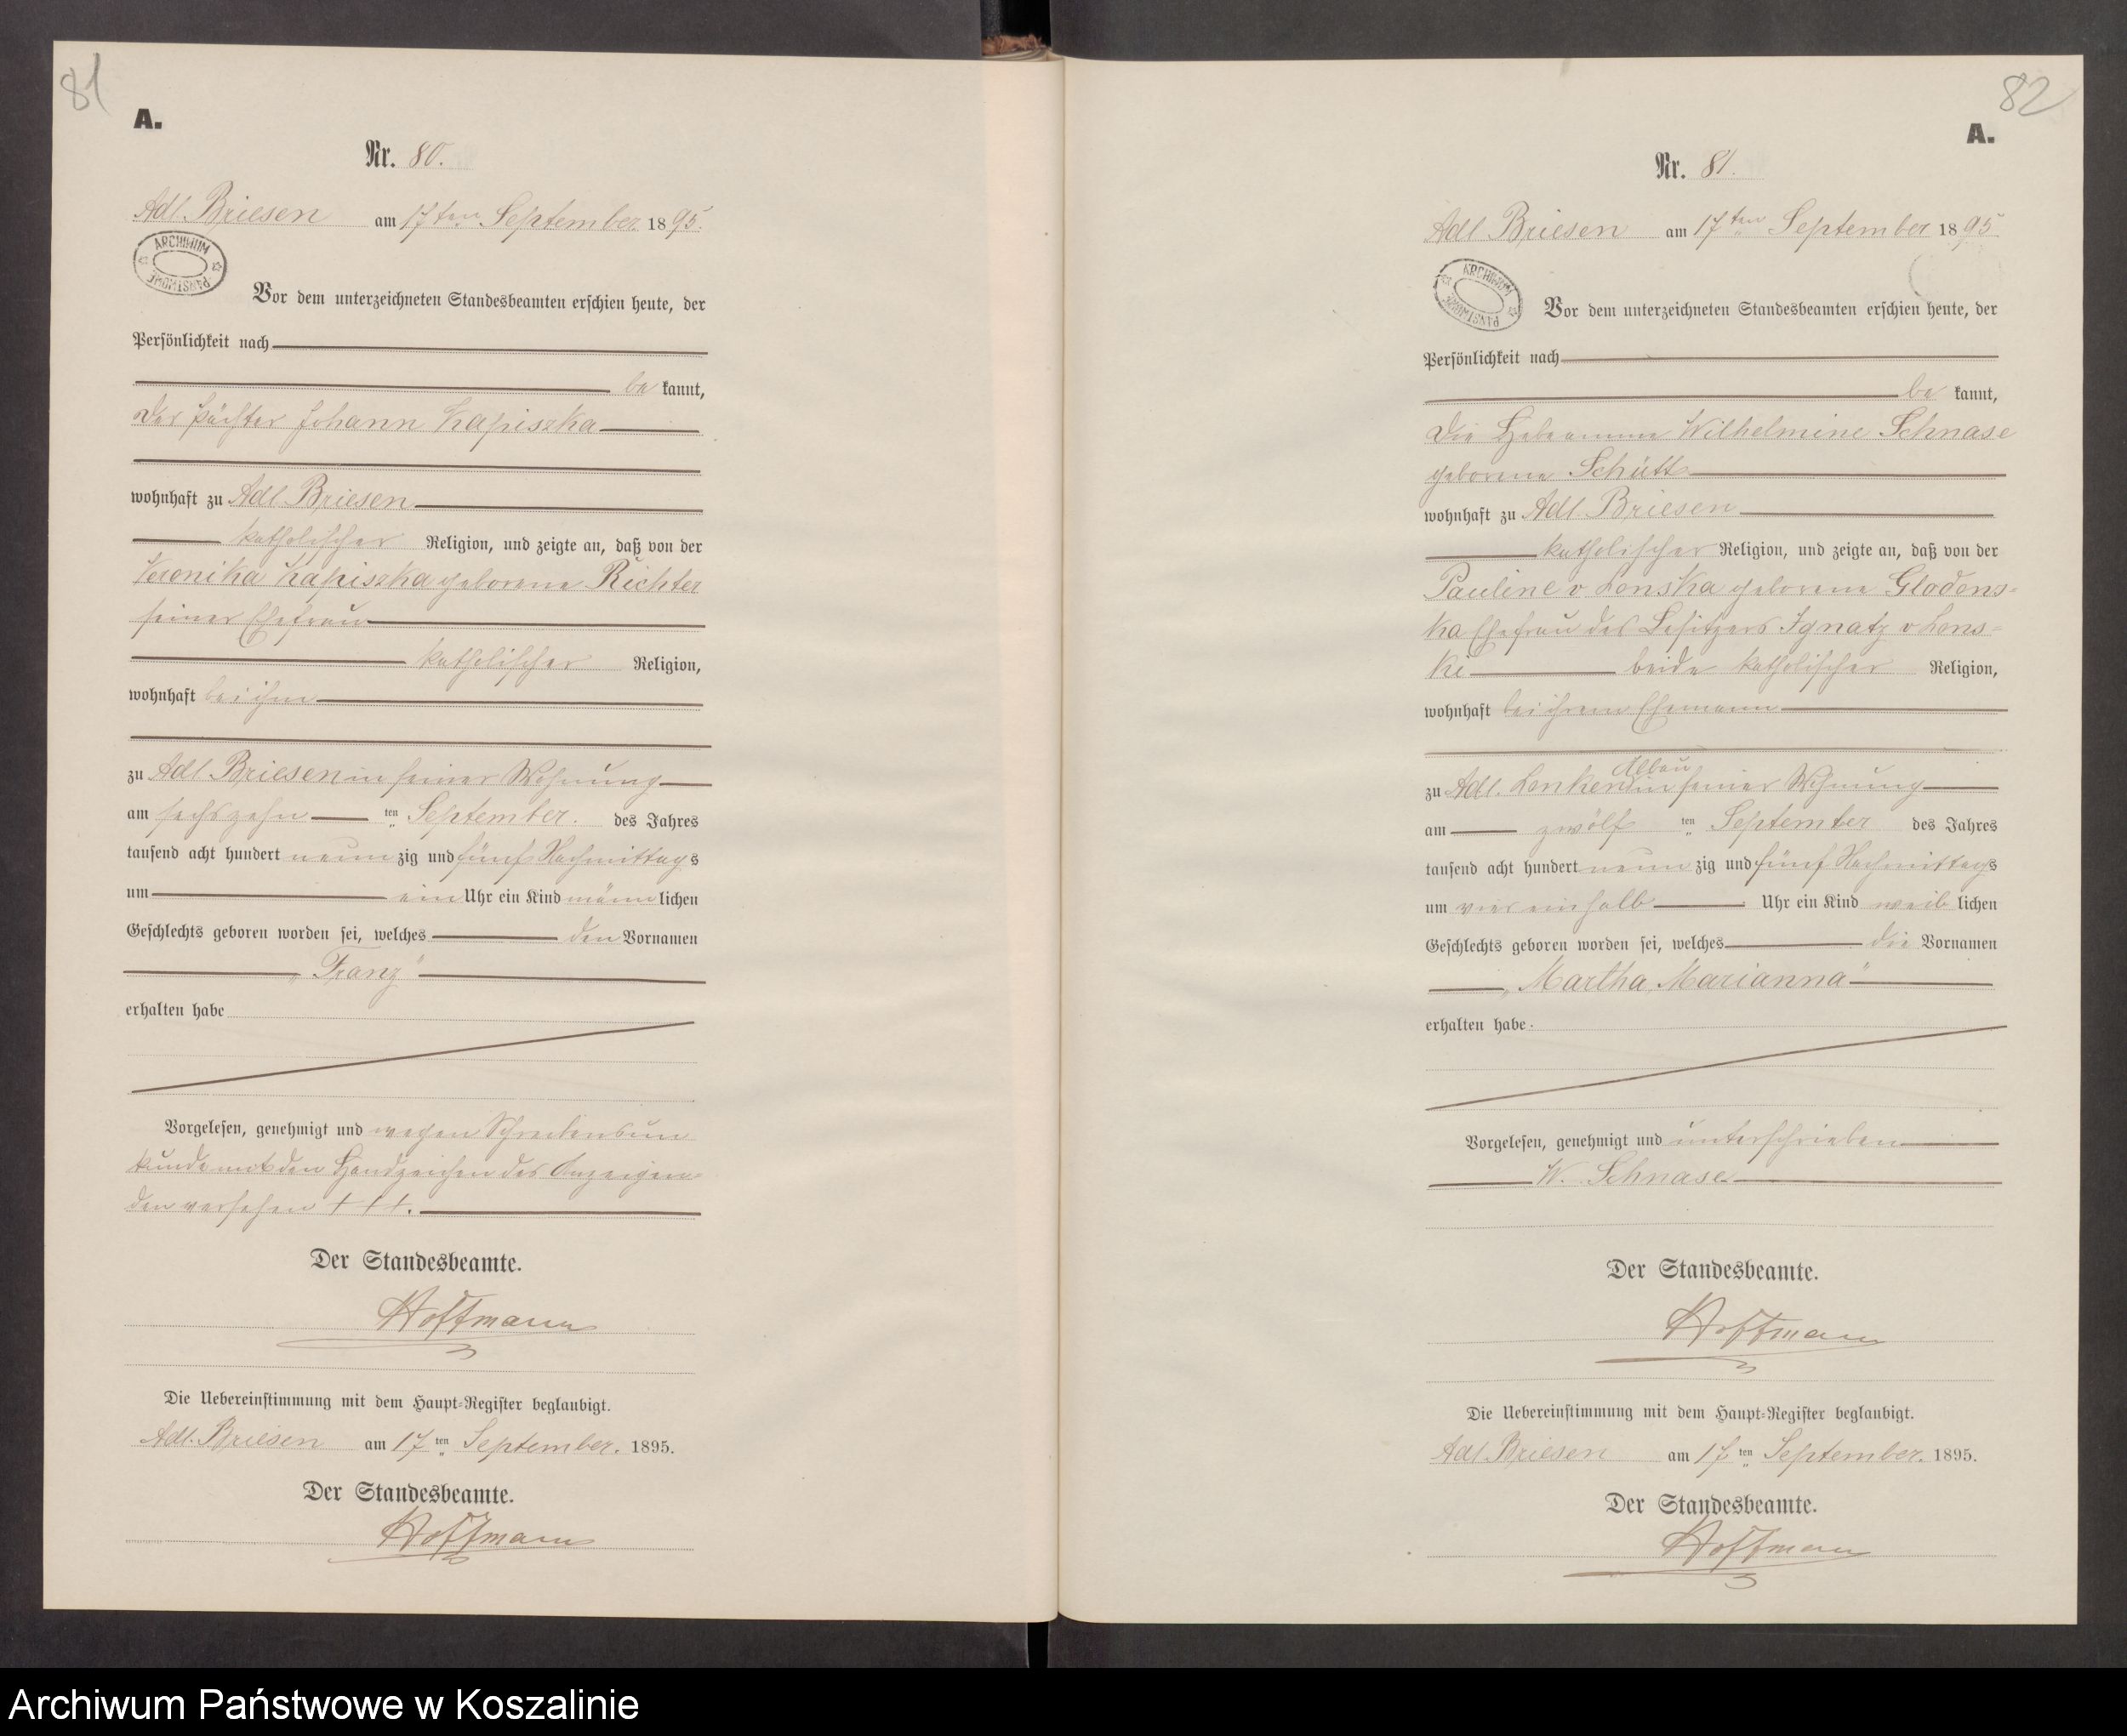 81
A.
Nr. 80.
Adl. Briesen am 17ten September 1895.
ARCHIWUM PAŃSTWOWE
Vor dem unterzeichneten Standesbeamten erschien heute, der
Persönlichkeit nach
be kannt,
der Pächter Johann Kapiszka
wohnhaft zu Adl. Briesen
katholischer Religion, und zeigte an, daß von der
Veronika Kapiszka geborene Richter
seiner Ehefrau
katholischer Religion,
wohnhaft bei ihm
zu Adl. Briesen in seiner Wohnung
am sechszehn ten September. des Jahres
tausend acht hundert neun zig und fünf Nachmittags
um ein Uhr ein Kind männ lichen
Geschlechts geboren worden sei, welches den Vornamen
„Franz"
erhalten habe
Vorgelesen, genehmigt und wegen Schreibensun
kunde mit den Handzeichen des Anzeigen-
den versehen + + +.
Der Standesbeamte.
Hoffmann
Die Uebereinstimmung mit dem Haupt-Register beglaubigt.
Adl. Briesen am 17 ten September. 1895.
Der Standesbeamte.
Hoffmann
82
A.
Nr. 81.
Adl. Briesen am 17ten September 1895
ARCHIWUM PAŃSTWOWE
Vor dem unterzeichneten Standesbeamten erschien heute, der
Persönlichkeit nach
be kannt,
die Hebeamme Wilhelmine Schnase
geborene Schütt
wohnhaft zu Adl. Briesen
katholischer Religion, und zeigte an, daß von der
Pauline v Lonska geborene Glodows-
ka Ehefrau des Besitzers Ignatz v Lons-
ki beide katholischer Religion,
wohnhaft bei ihrem Ehemann
Abbau
zu Adl. Lonken in seiner Wohnung
am zwölf ten September des Jahres
tausend acht hundert neun zig und fünf Nachmittags
um vier einhalb Uhr ein Kind weib lichen
Geschlechts geboren worden sei, welches die Vornamen
„Martha, Marianna"
erhalten habe.
Vorgelesen, genehmigt und unterschrieben
W. Schnase
Der Standesbeamte.
Hoffmann
Die Uebereinstimmung mit dem Haupt-Register beglaubigt.
Adl. Briesen am 17 ten September. 1895.
Der Standesbeamte.
Hoffmann
Archiwum Państwowe w Koszalinie